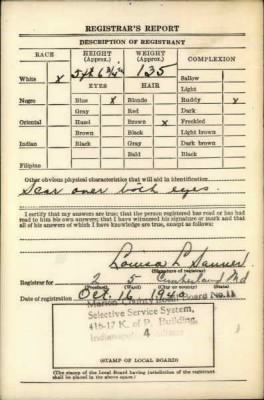 REGISTRAR'S REPORT
DESCRIPTION OF REGISTRANT
RACE
HEIGHT (Approx.)
WEIGHT (Approx.)
COMPLEXION
White x
135
Sallow
EYES
HAIR
Light
Negro
Blue x
Blonde
Ruddy x
Gray
Red
Dark
Oriental
Hazel
Brown x
Freckled
Brown
Black
Light brown
Indian
Black
Gray
Dark brown
Bald
Black
Filipino
Other obvious physical characteristics that will aid in identification
Scar over both eyes.
I certify that my answers are true; that the person registered has read or has had
read to him his own answers; that I have witnessed his signature or mark and that
all of his answers of which I have knowledge are true, except as follows:
Louisa L
(Signature of registrar)
Registrar for 2 5 Cumberland Md
(Precinct) (Ward) (City or county) (State)
Date of registration Oct. 16 1940
Marion County Local Board No. 11
Selective Service System,
416-17 K. of P. Building,
Indianapolis, Indiana
4
(STAMP OF LOCAL BOARD)
(The stamp of the Local Board having jurisdiction of the registrant
shall be placed in the above space.)